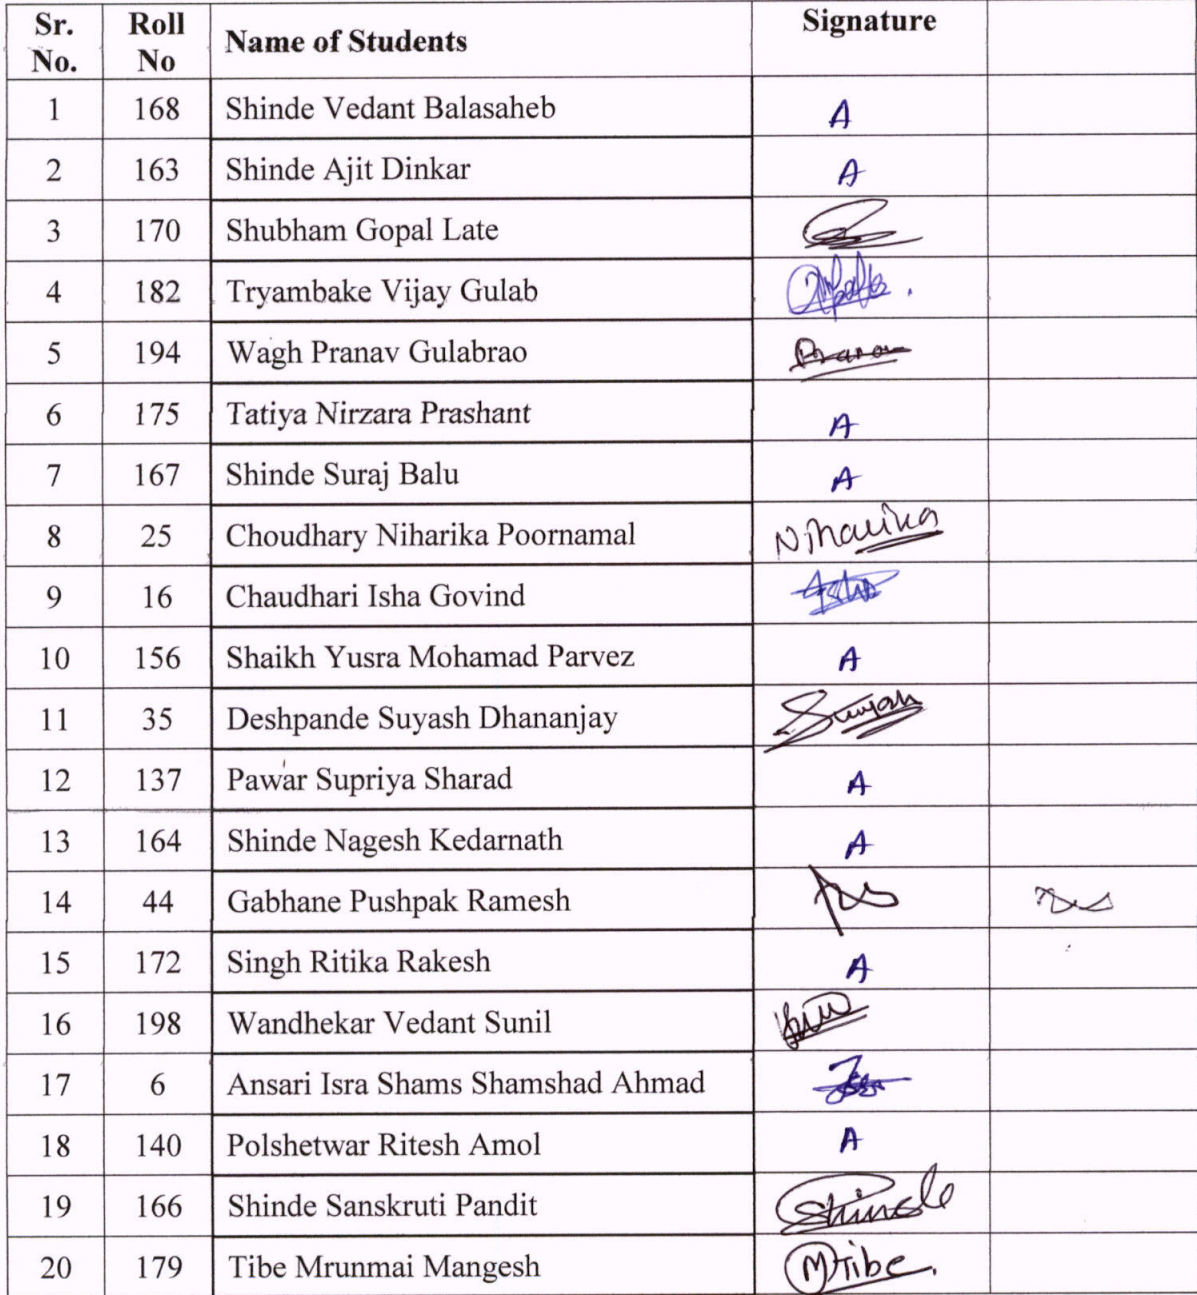 Sr. No. Roll No Name of Students Signature
1 168 Shinde Vedant Balasaheb A
2 163 Shinde Ajit Dinkar A
3 170 Shubham Gopal Late
4 182 Tryambake Vijay Gulab
5 194 Wagh Pranav Gulabrao Pranav
6 175 Tatiya Nirzara Prashant A
7 167 Shinde Suraj Balu A
8 25 Choudhary Niharika Poornamal Niharika
9 16 Chaudhari Isha Govind
10 156 Shaikh Yusra Mohamad Parvez A
11 35 Deshpande Suyash Dhananjay Suyash
12 137 Pawar Supriya Sharad A
13 164 Shinde Nagesh Kedarnath A
14 44 Gabhane Pushpak Ramesh
15 172 Singh Ritika Rakesh A
16 198 Wandhekar Vedant Sunil
17 6 Ansari Isra Shams Shamshad Ahmad
18 140 Polshetwar Ritesh Amol A
19 166 Shinde Sanskruti Pandit Shinde
20 179 Tibe Mrunmai Mangesh MTibe.